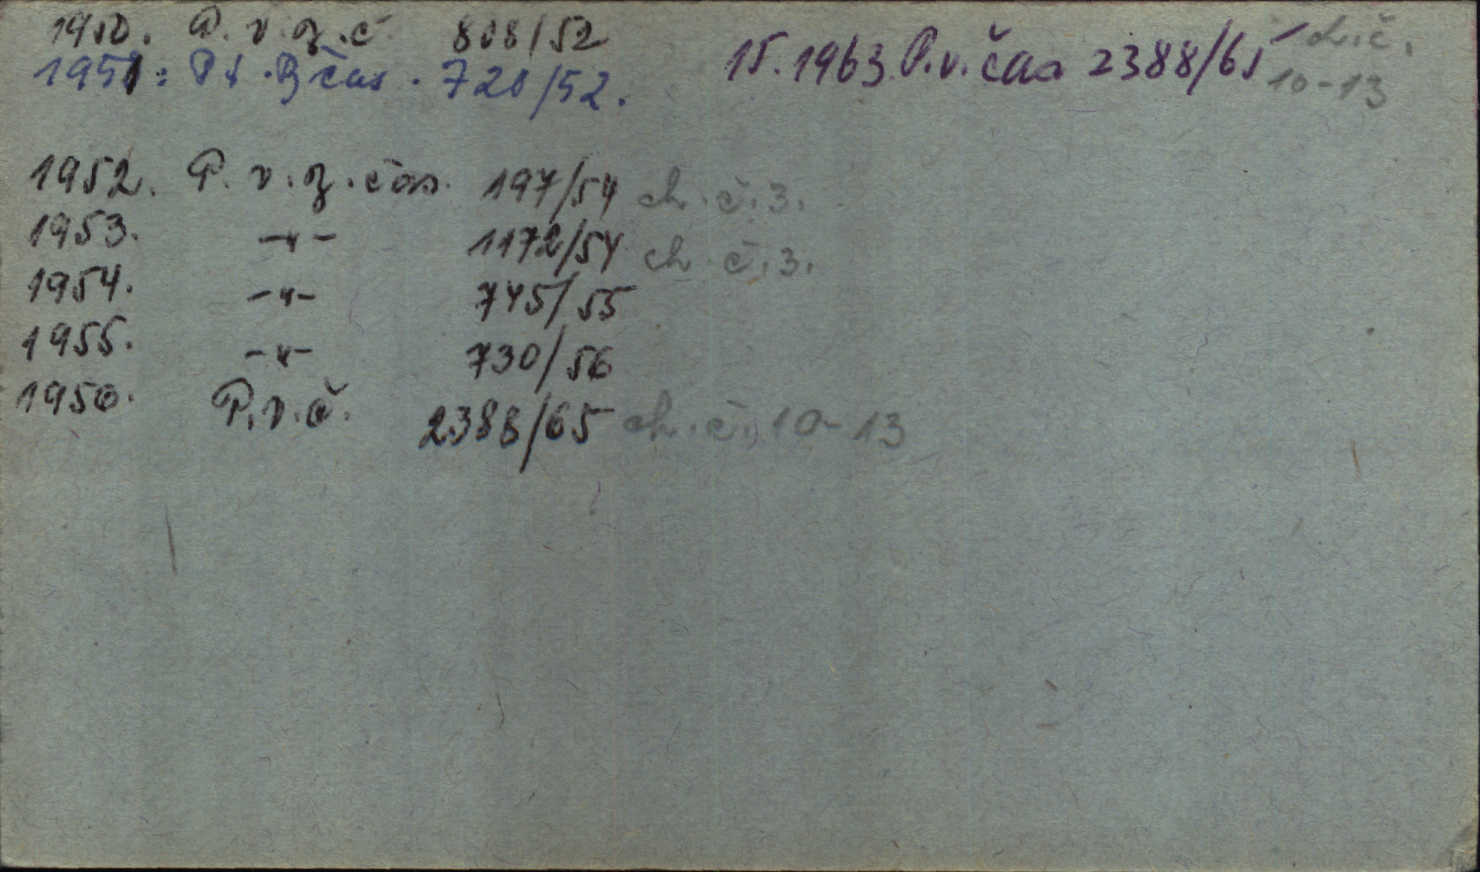 1950. P. v. z. č 808/52
1951: P v. z čas. 728/52.
1952. P. v. z. čas. 197/54 ch. č. 3.
1953. -"- 1172/54 ch. č. 3.
1954. -"- 745/55
1955. -"- 730/56
1950. P. v. č. 2388/65 ch. č. 10-13
15. 1963 P. v. čas 2388/65 ch. č.
10-13